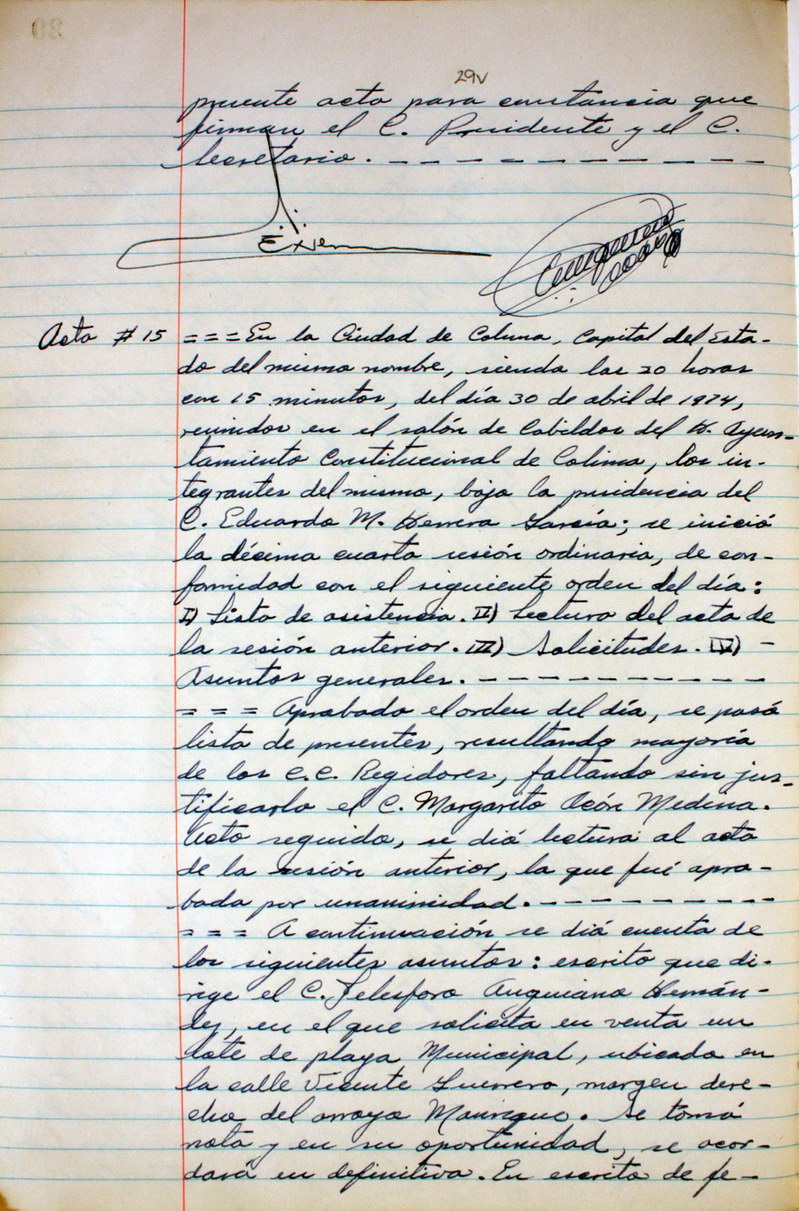 29v
presente acta para constancia que
firman el C. Presidente y el C.
Secretario. — — — — — — — — — — —
Acta # 15 === En la Ciudad de Colima, Capital del Esta-
do del mismo nombre, siendo las 20 horas
con 15 minutos, del día 30 de abril de 1974,
reunidos en el salón de Cabildos del H. Ayun-
tamiento Constitucional de Colima, los in-
tegrantes del mismo, bajo la presidencia del
C. Eduardo M. Herrera García; se inició
la décima cuarta sesión ordinaria, de con-
formidad con el siguiente orden del día:
I) Lista de asistencia. II) Lectura del acta de
la sesión anterior. III) Solicitudes. IV) -
Asuntos generales. — — — — — — — — — —
=== Aprobado el orden del día, se pasó
lista de presentes, resultando mayoría
de los C.C. Regidores, faltando sin jus-
tificarlo el C. Margarito Ocón Medina.
Acto seguido, se dió lectura al acta
de la sesión anterior, la que fué apro-
bada por unanimidad. — — — — — — — — —
=== A continuación se dió cuenta de
los siguientes asuntos: escrito que di-
rige el C. Telesforo Anguiano Hernán-
dez, en el que solicita en venta un
lote de playa Municipal, ubicada en
la calle Vicente Guerrero, margen dere-
cha del arroyo Manrique. Se tomó
nota y en su oportunidad, se acor-
dará en definitiva. En escrito de fe-